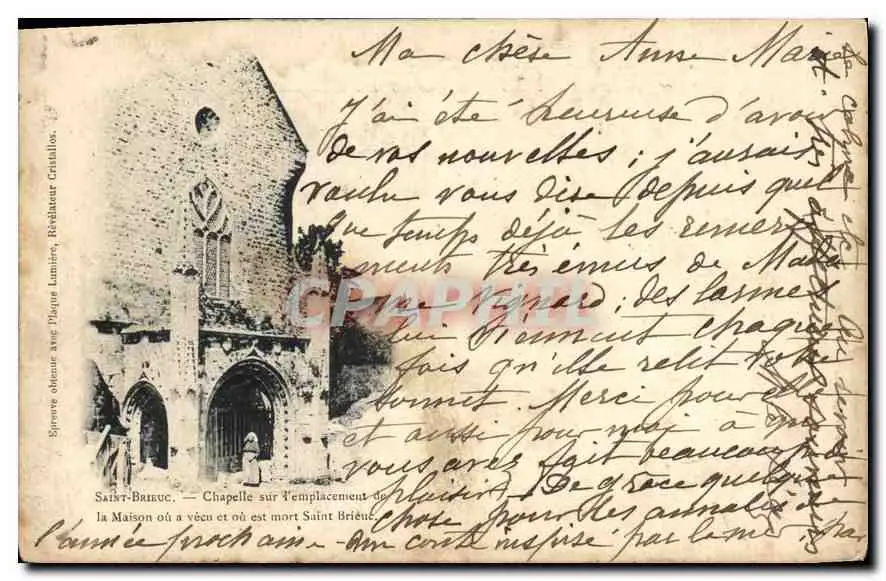 Ma chère Anne Marie
J'ai été heureuse d'avoir
de vos nouvelles ; j'aurais
voulu vous dire depuis quel
que temps déjà les remer
ments très émus de Mada
me Vignard ; des larmes
lui viennent chaque
fois qu'elle relit votre
sonnet Merci pour elle
et aussi pour moi à qui
vous avez fait beaucoup de
plaisir. De grâce quelque
chose pour les annales de
l'année prochaine - un conte inspiré par la mer, par
le calme
SAINT-BRIEUC. — Chapelle sur l'emplacement de
la Maison où a vécu et où est mort Saint Brieuc.
Epreuve obtenue avec Plaque Lumière, Révélateur Cristallos.
CPARPHIL